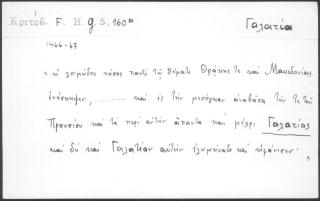 Κριτόβ. F. H. g. 5, 160ᵃ Γαλατία
1466-67
ἡ λοιμώδης νόσος παντὶ τῷ θέματι Θρᾴκης τε καὶ Μακεδονίας
ἐνέσκηψεν, .......... καὶ ἐς τὴν μεσόγειον ἀναβᾶσα τήν τε τοῦ
Προυσίου καὶ τὰ περὶ αὐτὴν ἅπαντα καὶ μέχρι Γαλατίας
καὶ δὴ καὶ Γαλατίαν αὐτὴν ἐλυμήνατο καὶ ἠφάνισεν.